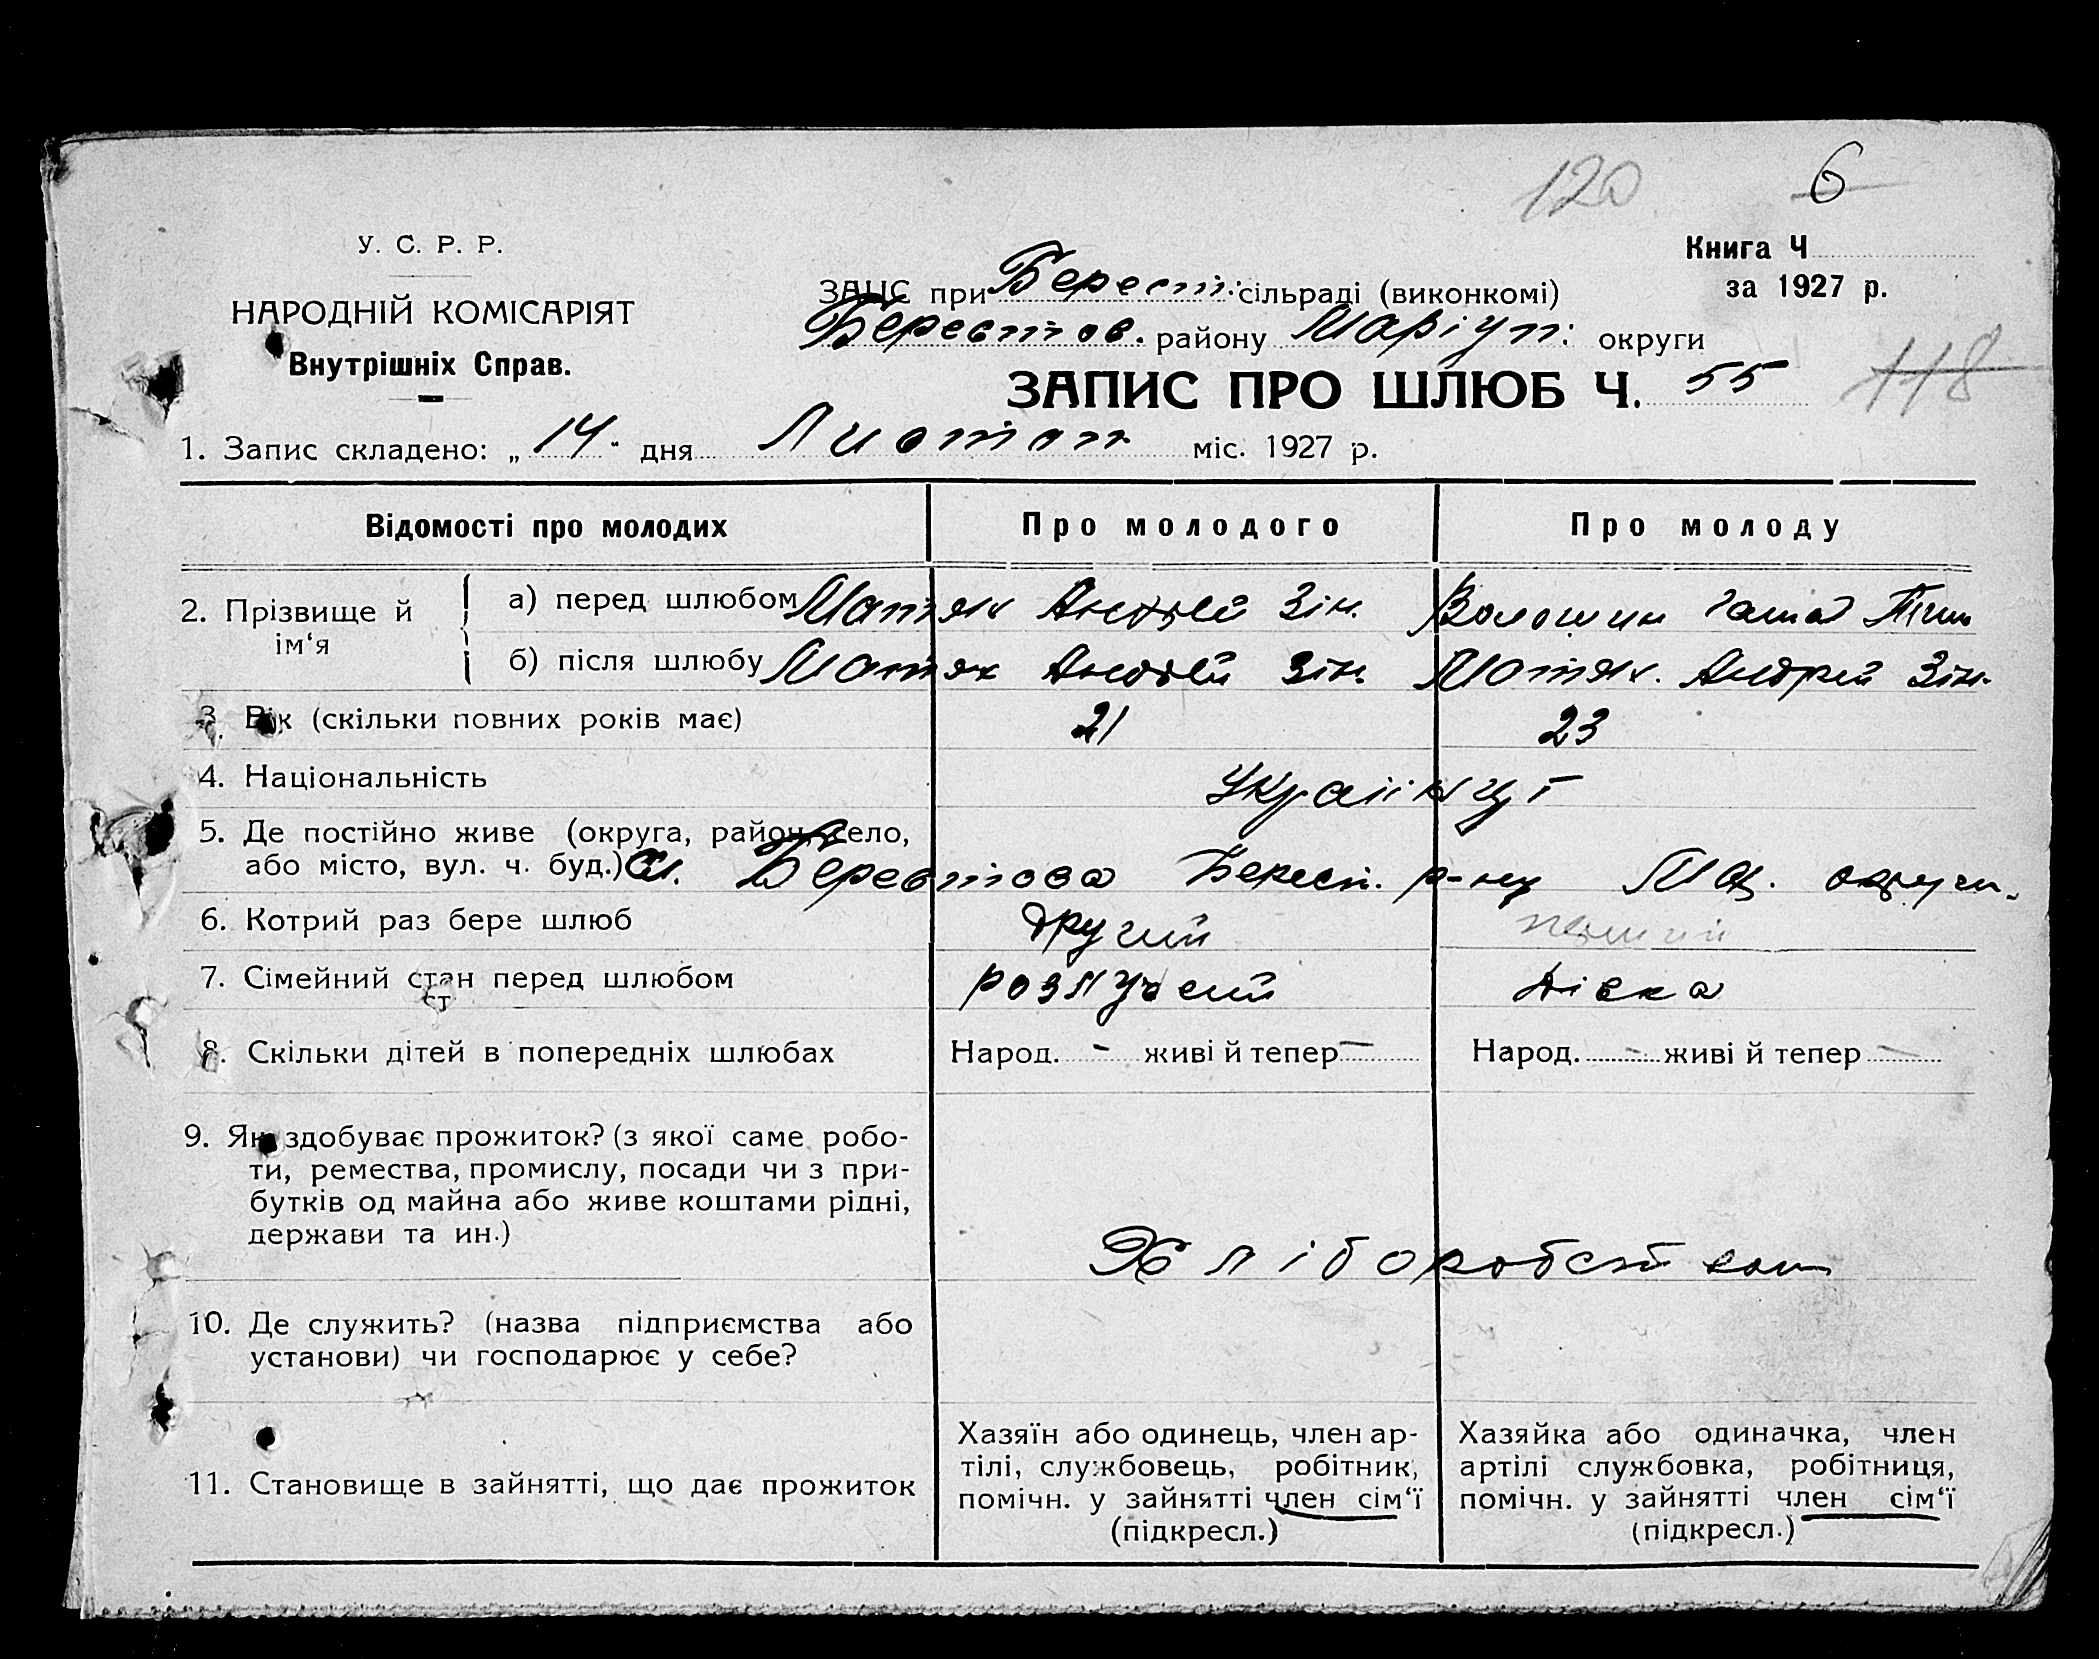 120 6
У. С. Р. Р.
Книга Ч
ЗАПС при Берест. сільраді (виконкомі)
за 1927 р.
НАРОДНІЙ КОМІСАРІЯТ
Берестов. району Маріуп. округи
Внутрішніх Справ.
ЗАПИС ПРО ШЛЮБ Ч. 55
118
1. Запис складено: „ 14 " дня Листоп міс. 1927 р.
Відомості про молодих Про молодого Про молоду
2. Прізвище й ім‘я
а) перед шлюбом Матяк Андрій Зін. Волошин Гаша Тим
б) після шлюбу Матяк Андрій Зін. Матяк. Андрей Зін.
3. Вік (скільки повних років має) 21 23
4. Національність Українці
5. Де постійно живе (округа, район, село,
або місто, вул. ч. буд.) Сл. Берестова Берест. р-ну МЩ. округи.
6. Котрий раз бере шлюб другий перший
7. Сімейний стан перед шлюбом розлучений дівка
8. Скільки дітей в попередніх шлюбах Народ. - живі й тепер — Народ. - живі й тепер —
9. Як здобуває прожиток? (з якої саме робо-
ти, ремества, промислу, посади чи з при-
бутків од майна або живе коштами рідні,
держави та ин.)
Хліборобством
10. Де служить? (назва підприємства або
установи) чи господарює у себе?
11. Становище в зайнятті, що дає прожиток
Хазяїн або одинець, член ар-
тілі, службовець, робітник,
помічн. у зайнятті член сім‘ї
(підкресл.)
Хазяйка або одиначка, член
артілі службовка, робітниця,
помічн. у зайнятті член сім‘ї
(підкресл.)